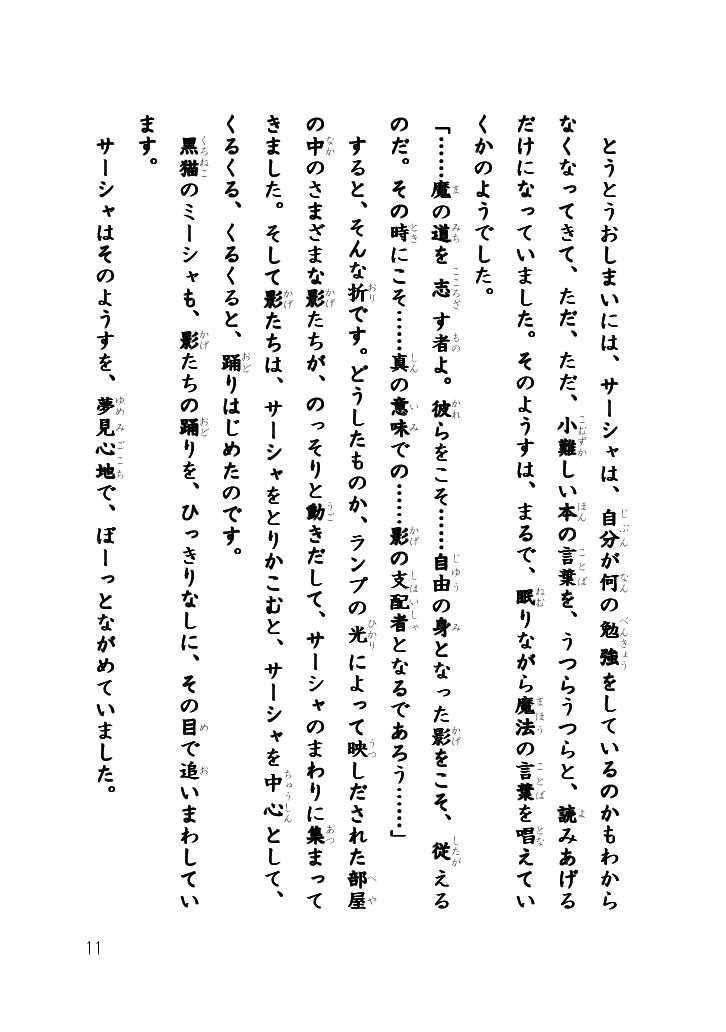 とうとうおしまいには、サーシャは、自分が何の勉強をしているのかもわから
なくなってきて、ただ、ただ、小難しい本の言葉を、うつらうつらと、読みあげる
だけになっていました。そのようすは、まるで、眠りながら魔法の言葉を唱えてい
くかのようでした。
「……魔の道を志す者よ。彼らをこそ……自由の身となった影をこそ、従える
のだ。その時にこそ……真の意味での……影の支配者となるであろう……」
すると、そんな折です。どうしたものか、ランプの光によって映しだされた部屋
の中のさまざまな影たちが、のっそりと動きだして、サーシャのまわりに集まって
きました。そして影たちは、サーシャをとりかこむと、サーシャを中心として、
くるくる、くるくると、踊りはじめたのです。
黒猫のミーシャも、影たちの踊りを、ひっきりなしに、その目で追いまわしてい
ます。
サーシャはそのようすを、夢見心地で、ぼーっとながめていました。
11